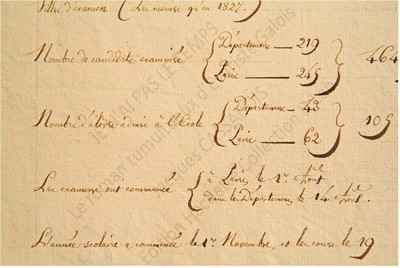 Villes d'examen ( Les mêmes qu'en 1827.
Nombre de candidats examinés { Départemens — 219
Paris — 245 } 464
Nombre d'élèves admis à l'École { Départemens — 43
Paris — 62 } 105
Les examens ont commencé { à Paris, le 1er Août
dans les Départemens, le 14 Août.
L'année scolaire a commencé le 1er Novembre, et les cours le 19
JE N'AI PAS LE TEMPS
Le roman tumultueux d'Évariste Galois